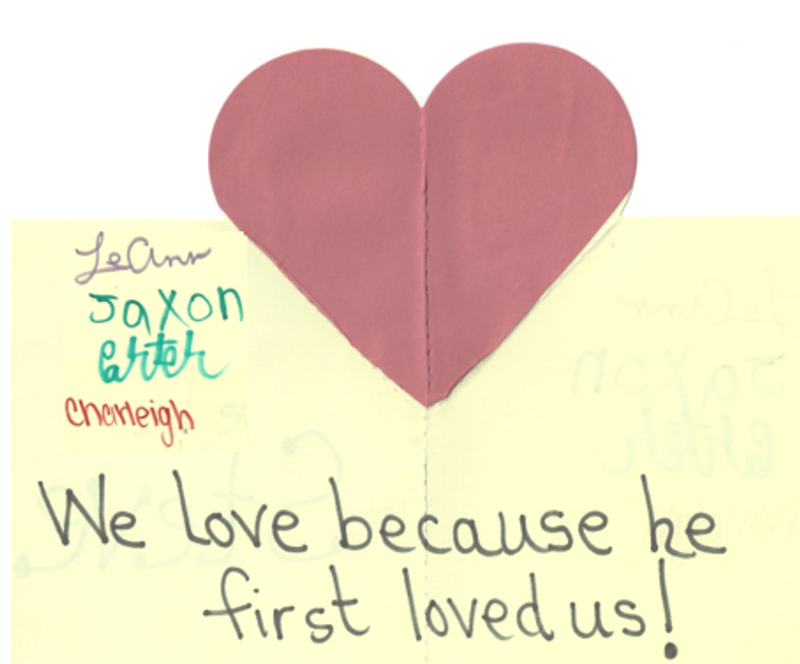 LeAnn
Jaxon
Carter
Charleigh
We love because he
first loved us!